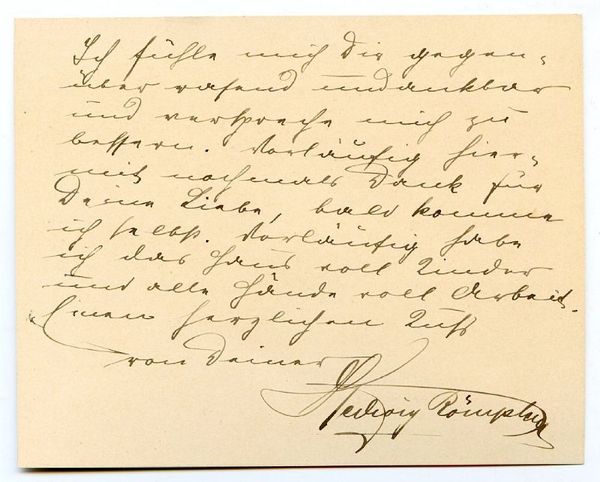 Ich fühle mich dir gegen-
über rasend undankbar
und verspreche mich zu
bessern. Vorläufig hier-
mit nochmals Dank für
Deine Liebe, bald komme
ich selbst. Vorläufig habe
ich das Haus voll Kinder
und alle Hände voll Arbeit.
Einen herzlichen Kuß
von Deiner
Hedwig Römpler